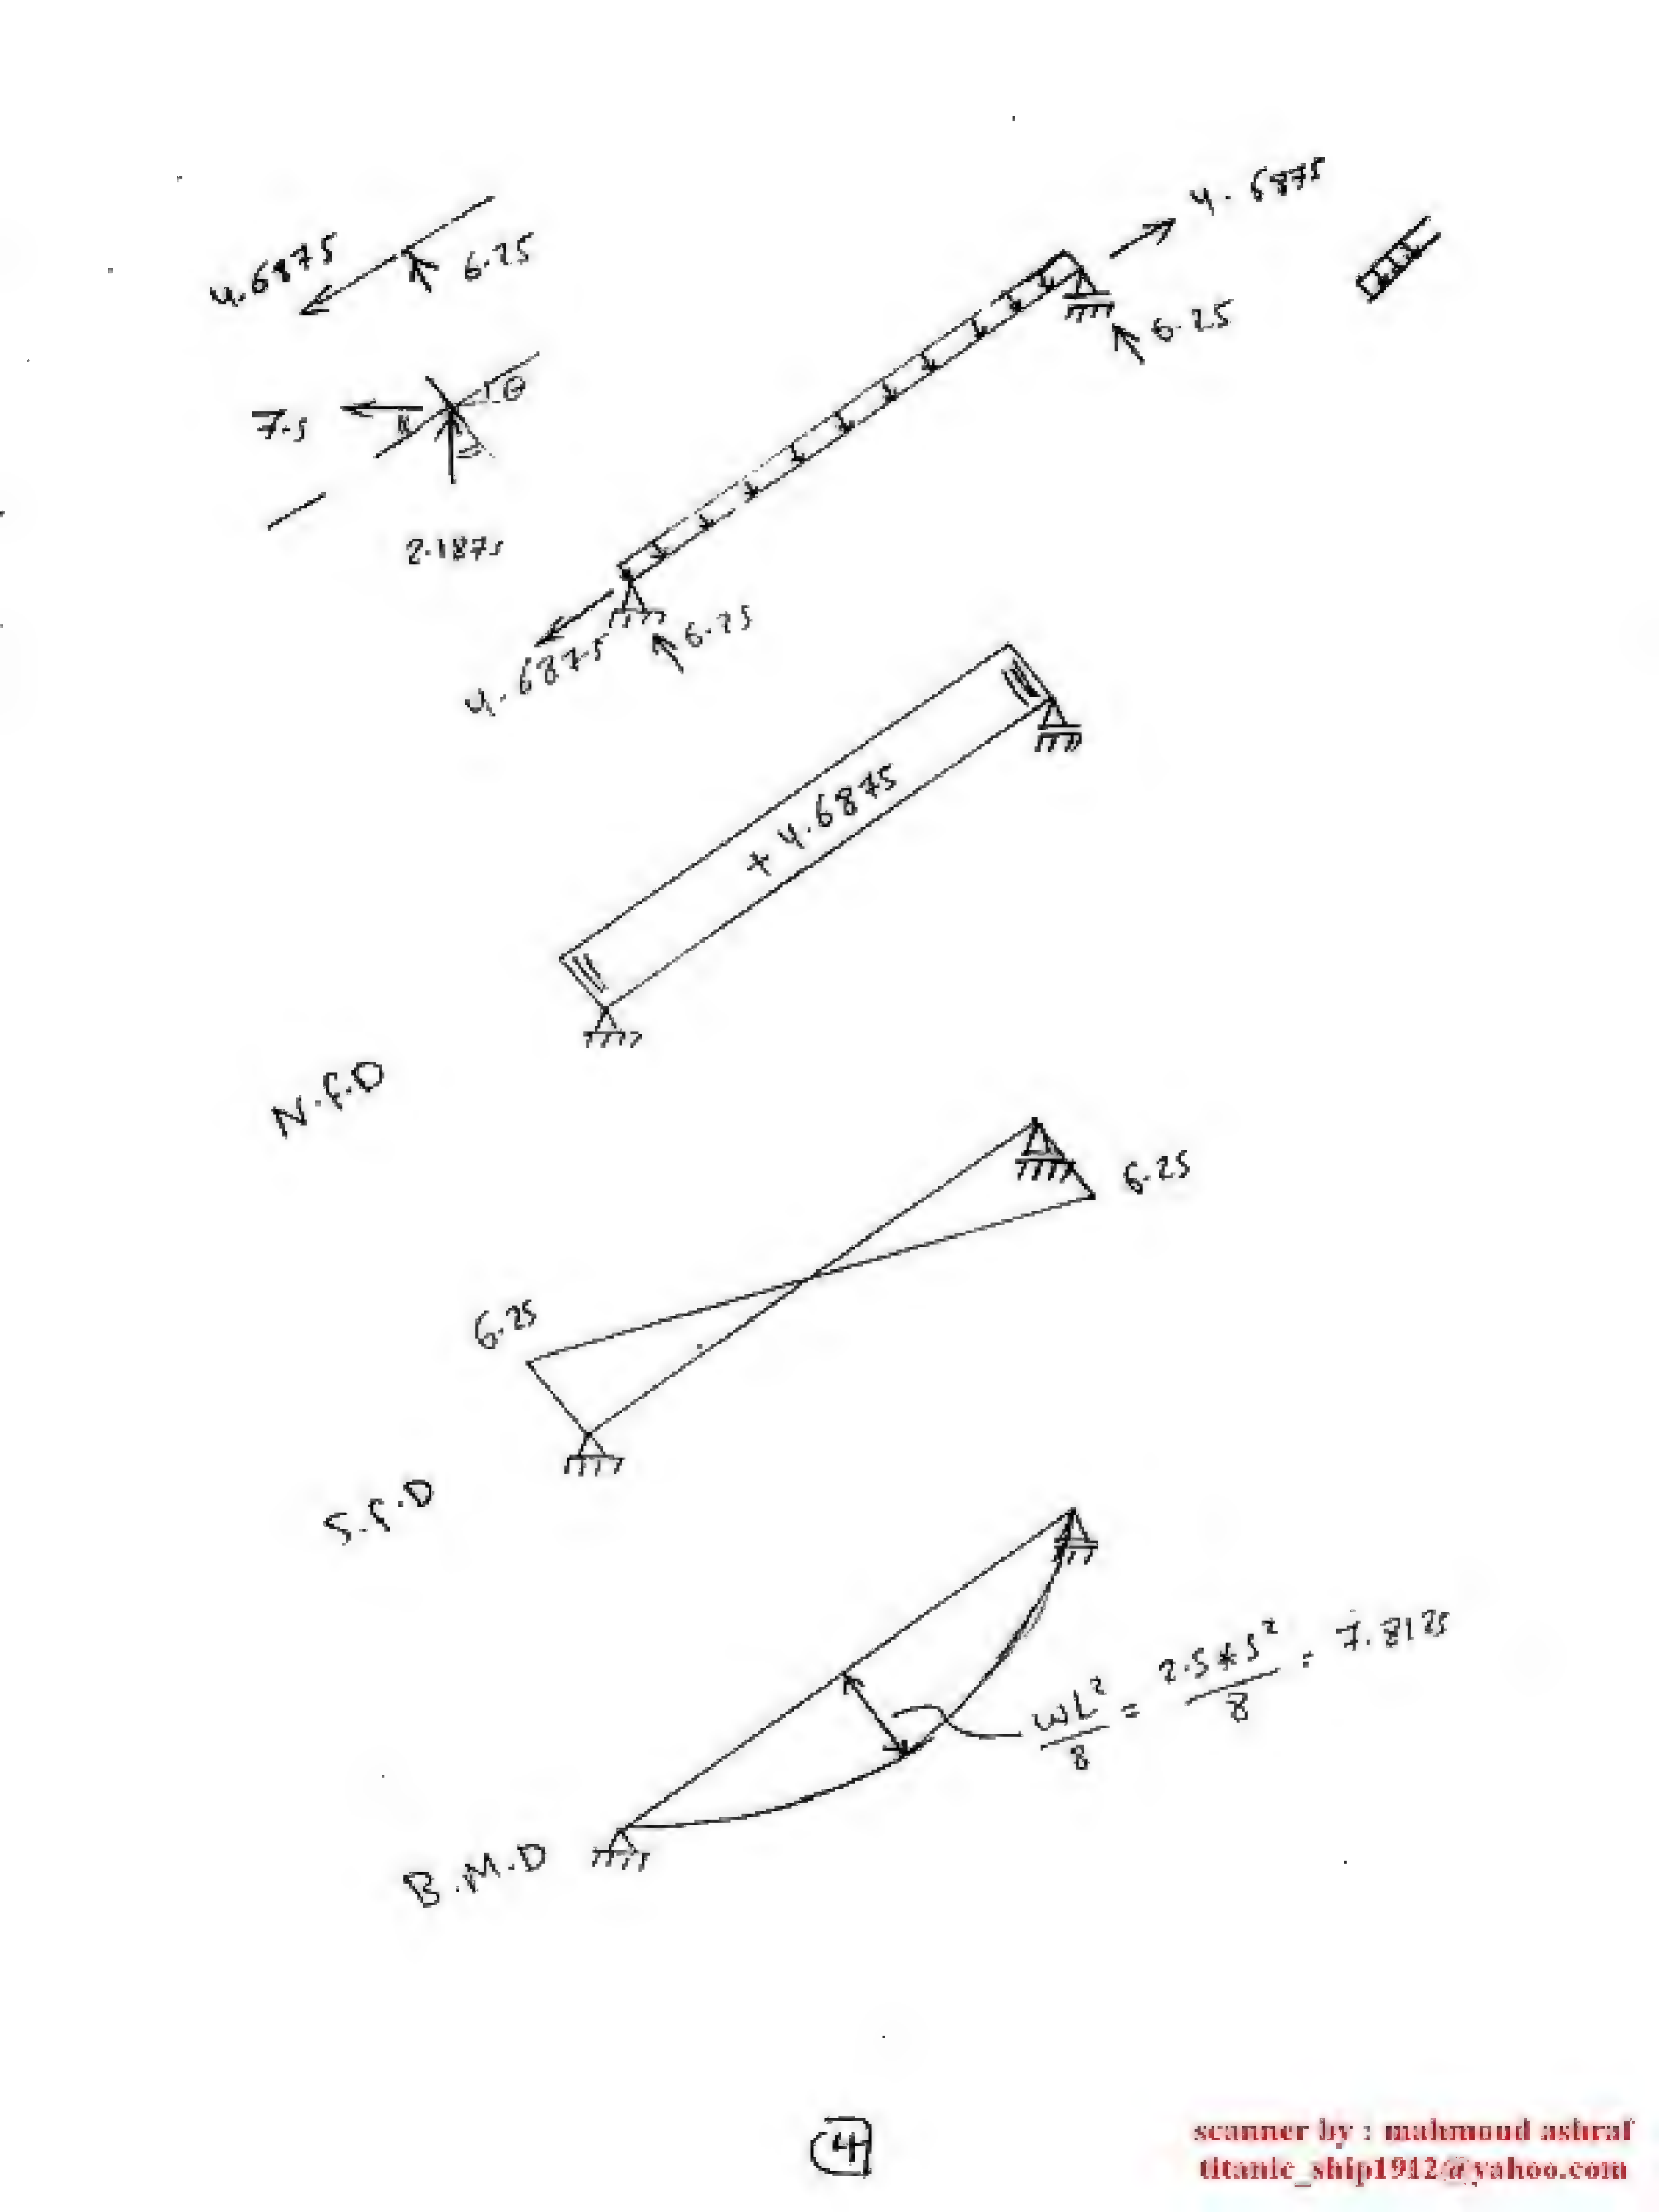 4.6875
6.25
4.6875
6.25
θ
7.5
2.1875
4.6875
6.25
+ 4.6875
N.F.D
6.25
6.25
S.F.D
WL²/8 = 2.5*5²/8 = 7.8125
B.M.D
4
scanner by : mahmoud ashraf
titanic_ship1912@yahoo.com